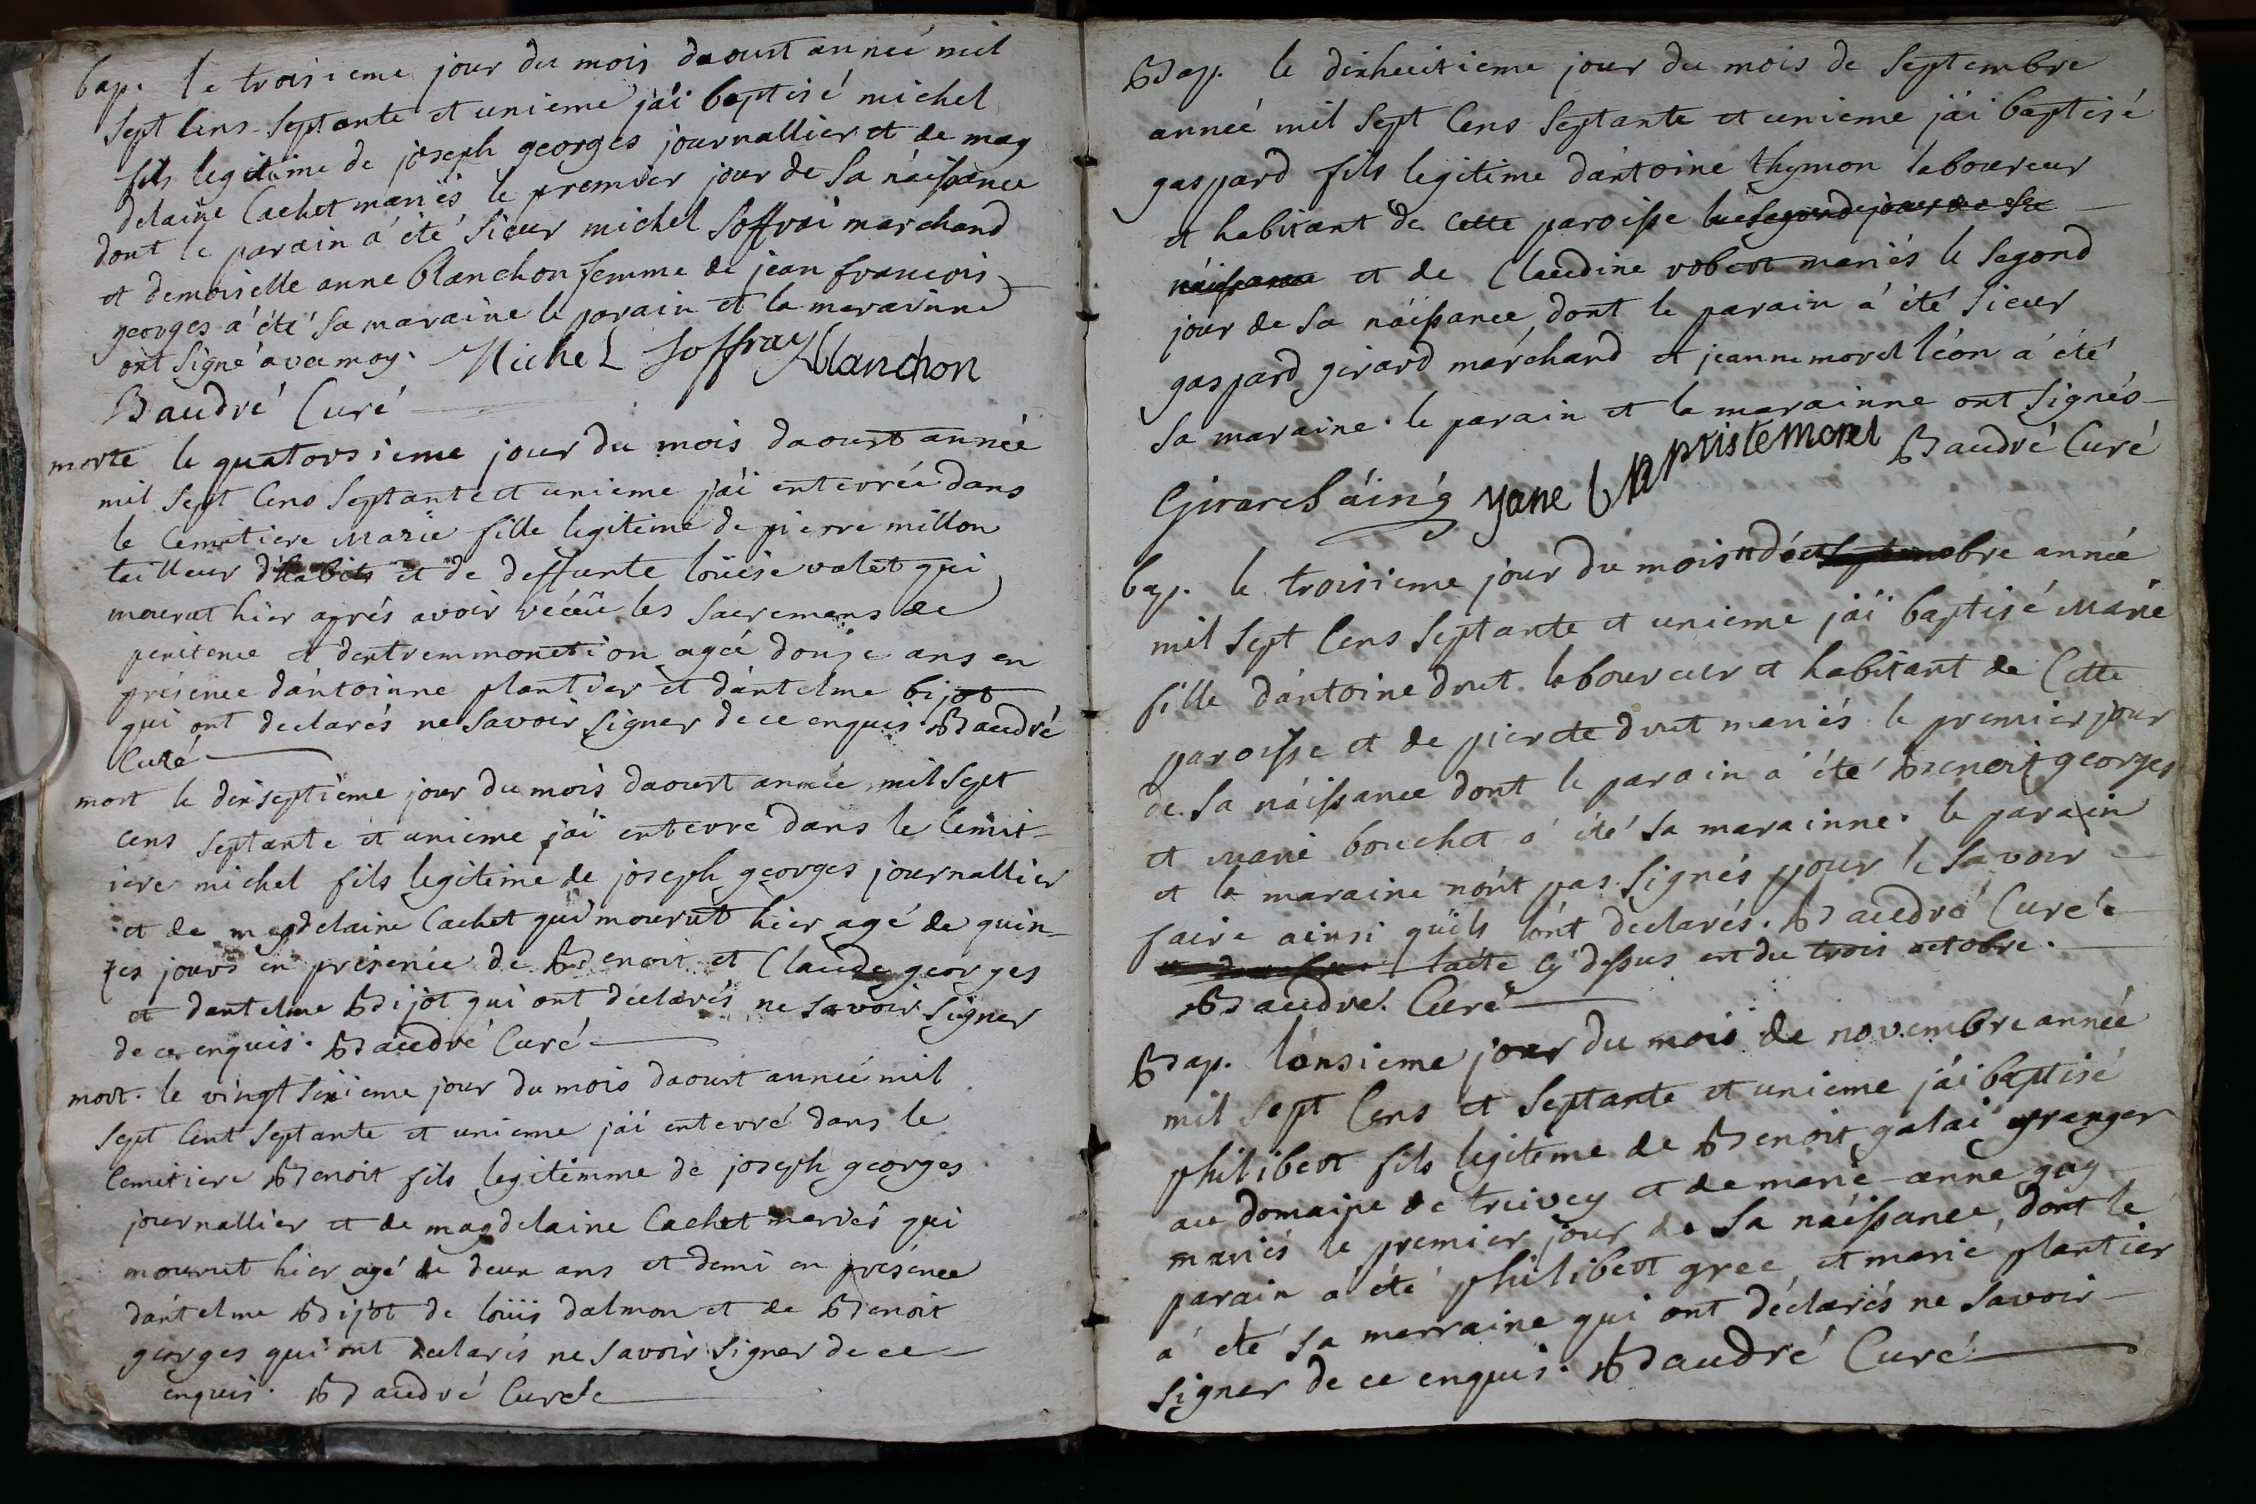 bap. le troisieme jour du mois daoust anneé mil
sept cens septante et unieme j'ai baptisé michel
fils legitime de joseph georges journallier et de mag
delaine Cachet mariés le premier jour de sa náissance
dont le parain á été sieur michel soffrai marchand
et demoiselle anne blanchon femme de jean francois
georges á été sa maraine le parain et la marainne
ont signé avec moy. Michel soffray blanchon
Baudré Curé
morte le quatorsieme jour du mois daoust année
mil sept cens septante et unieme j'ai enterrée dans
le Cemitiere Marie fille legitime de pierre millon
tailleur d'habits et de deffunte loüise valet qui
mourat hier aprés avoir recüe les sacremens de
penitence et dextremmonction agée douze ans en
présence dántoinne plantier et dántelme bijot
qui ont declarés ne savoir signer de ce enquis. Baudré
Curé
mort le dixseptieme jour du mois daoust année mil sept
cens septante et unieme j'ai enterré dans le Cemit-
iere michel fils legitime de joseph georges journallier
et de magdelaine Cachet qui mourut hier agé de quin-
zes jours en présence de Benoit et Claude georges
et dantelme Bijot qui ont déclarés ne savoir signer
de ce enquis. Baudré Curé
mort. le vingt sixieme jour du mois daoust anneé mil
sept Cent septante et unieme j'ai enterré dans le
Cemitiere Benoit fils legitimme de joseph georges
journallier et de magdelaine Cachet mariés qui
mourut hier agé de deux ans et demi en présence
dántelme Bijot de loüis dalmon et de Benoit
georges qui ont declarés ne savoir signer de ce
enquis. Baudré Curé
Bap. le dixhuitieme jour du mois de septembre
anneé mil sept Cens septante et unieme j'ai baptisé
gaspard fils legitime dántoine thymon laboureur
et habitant de cette paroisse le segond jour de sa
náissance et de Claudine robert mariés le segond
jour de sa náissance, dont le parain á été sieur
gaspard girard márchand et jeanne morel léon á été
sa maraine. le parain et la marainne ont signés
Girard áiné yane baptiste morel Baudré Curé
bap. le troisieme jour du mois d'oct septembre année
mil sept Cens septante et unieme j'ai baptisé Marie
fille dántoine drut laboureur et habitant de Cette
paroisse et de pierete drut mariés le premier jour
de sa náissance dont le parain á été Benoit georges
et Marie bouchet á été sa marainne. le parain
et la maraine nónt pas signés pour le savoir
faire ainsi quíls lónt declarés. Baudré Curé
lácte cy dessus est du trois octobre.
Baudré. Curé
Bap. lónsieme jour du mois de novembre anneé
mil sept Cens et septante et unieme j'ai baptisé
philibert fils legitime de Benoit galai granger
au domaine de treivey et de marie-anne guy
mariés le premier jour de sa náissance, dont le
parain á été philibert gree et marie plantier
á été sa marraine qui ont déclarés ne savoir
signer de ce enquis. Baudré Curé